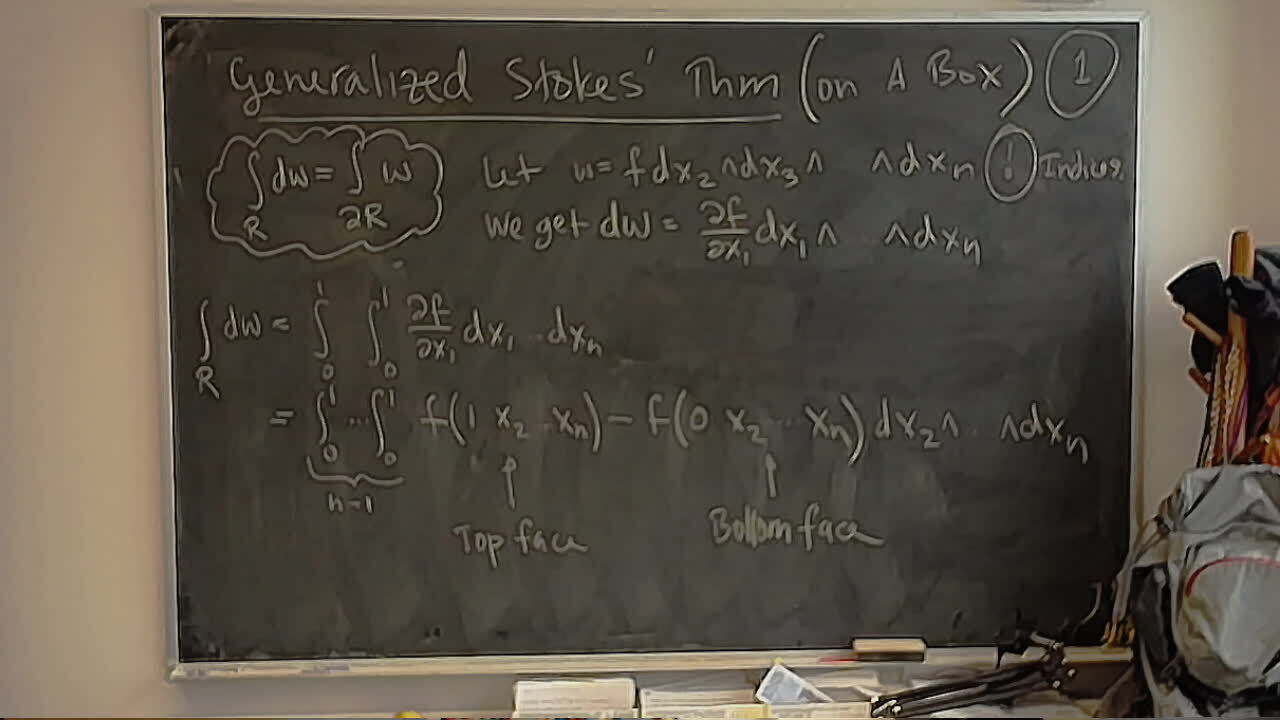 Generalized Stokes' Thm (on A Box) 1
∫_R dw = ∫_∂R w
Let w = f dx₂ ∧ dx₃ ∧ ∧ dxₙ ! Indices
We get dw = ∂f/∂x₁ dx₁ ∧ ∧ dxₙ
∫_R dw = ∫₀¹ ∫₀¹ ∂f/∂x₁ dx₁ .. dxₙ
= ∫₀¹ ... ∫₀¹ f(1 x₂ .. xₙ) - f(0 x₂ ... xₙ) dx₂ ∧ .. ∧ dxₙ
n-1
Top face
Bottom face